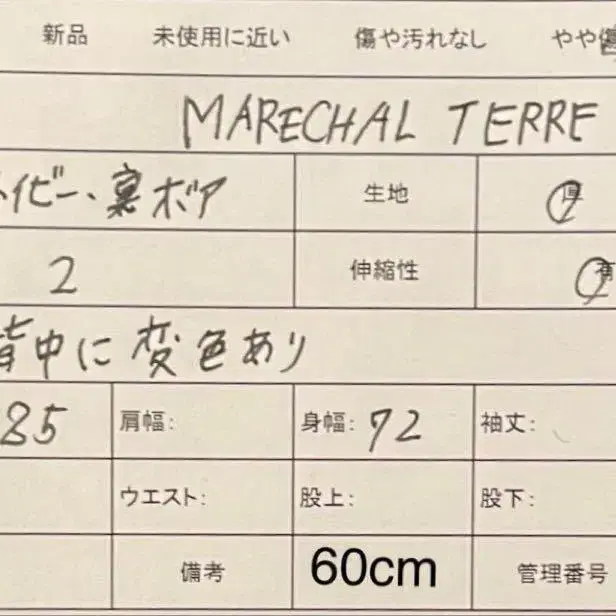 新品 未使用に近い 傷や汚れなし やや傷
MARECHAL TERRE
ネイビー、裏ボア 生地 厚
2 伸縮性 有
背中に変色あり
85 肩幅: 身幅: 72 袖丈:
ウエスト: 股上: 股下:
備考 60cm 管理番号